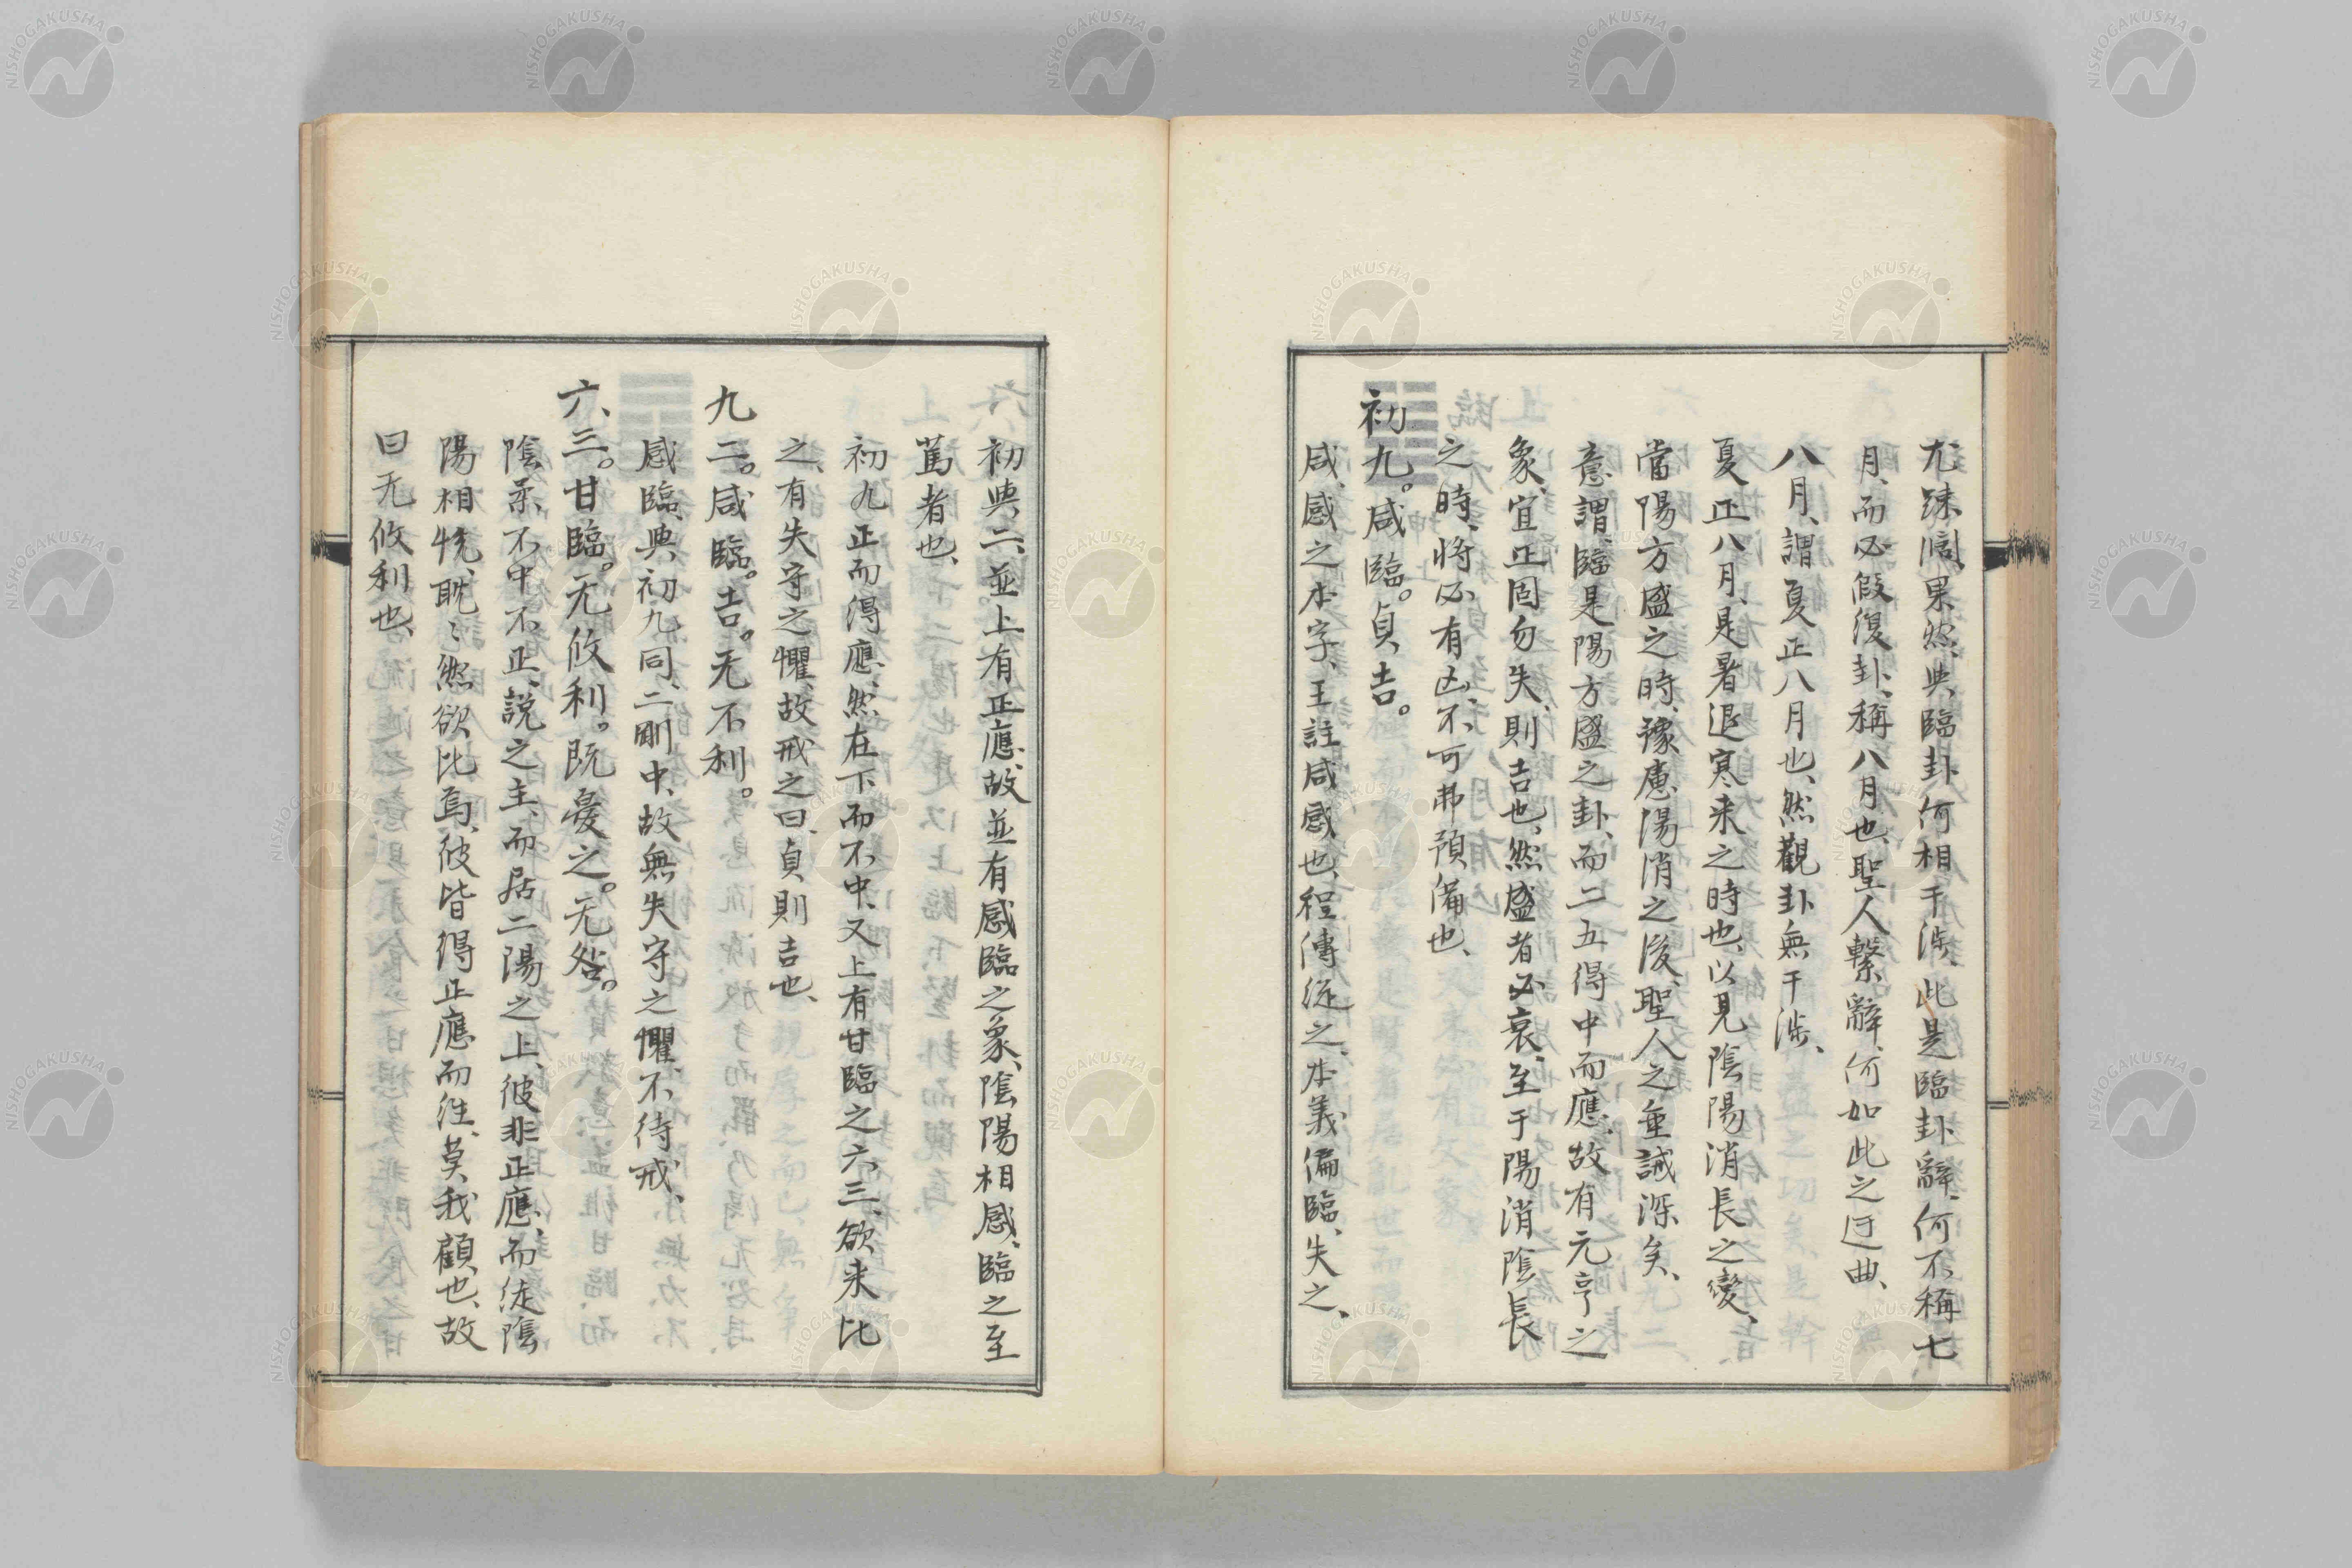 尤踈濶、果然、與臨卦何相干渉、此是臨卦辭、何不稱七
月、而必假復卦、稱八月也、聖人繫辭、何如此之迂曲、
八月、謂夏正八月也、然觀卦無干渉、
夏正八月、是暑退寒来之時也、以見陰陽消長之變、
當陽方盛之時、豫慮陽消之後、聖人之垂誡深矣、
意謂、臨是陽方盛之卦、而二五得中而應、故有元亨之
象、宜正固勿失、則吉也、然盛者必衰、至于陽消陰長
之時、将必有凶、不可弗預備也、
初九。咸臨。貞吉。
咸、感之本字、王註咸感也、程傳從之、本義徧臨、失之、
初與二、並上有正應、故並有感臨之象、陰陽相感、臨之至
篤者也、
初九正而得應、然在下而不中、又上有甘臨之六三、欲来比
之、有失守之懼、故戒之曰、貞則吉也、
九二。咸臨。吉。无不利。
感臨、與初九同、二剛中、故無失守之懼、不待戒、
六三。甘臨。无攸利。既憂之。无咎。
陰柔、不中不正、説之主、而居二陽之上、彼非正應、而徒陰
陽相恱、耽〻然欲比焉、彼皆得正應而往、莫我顧也、故
曰无攸利也、
NISHOGAKUSHA